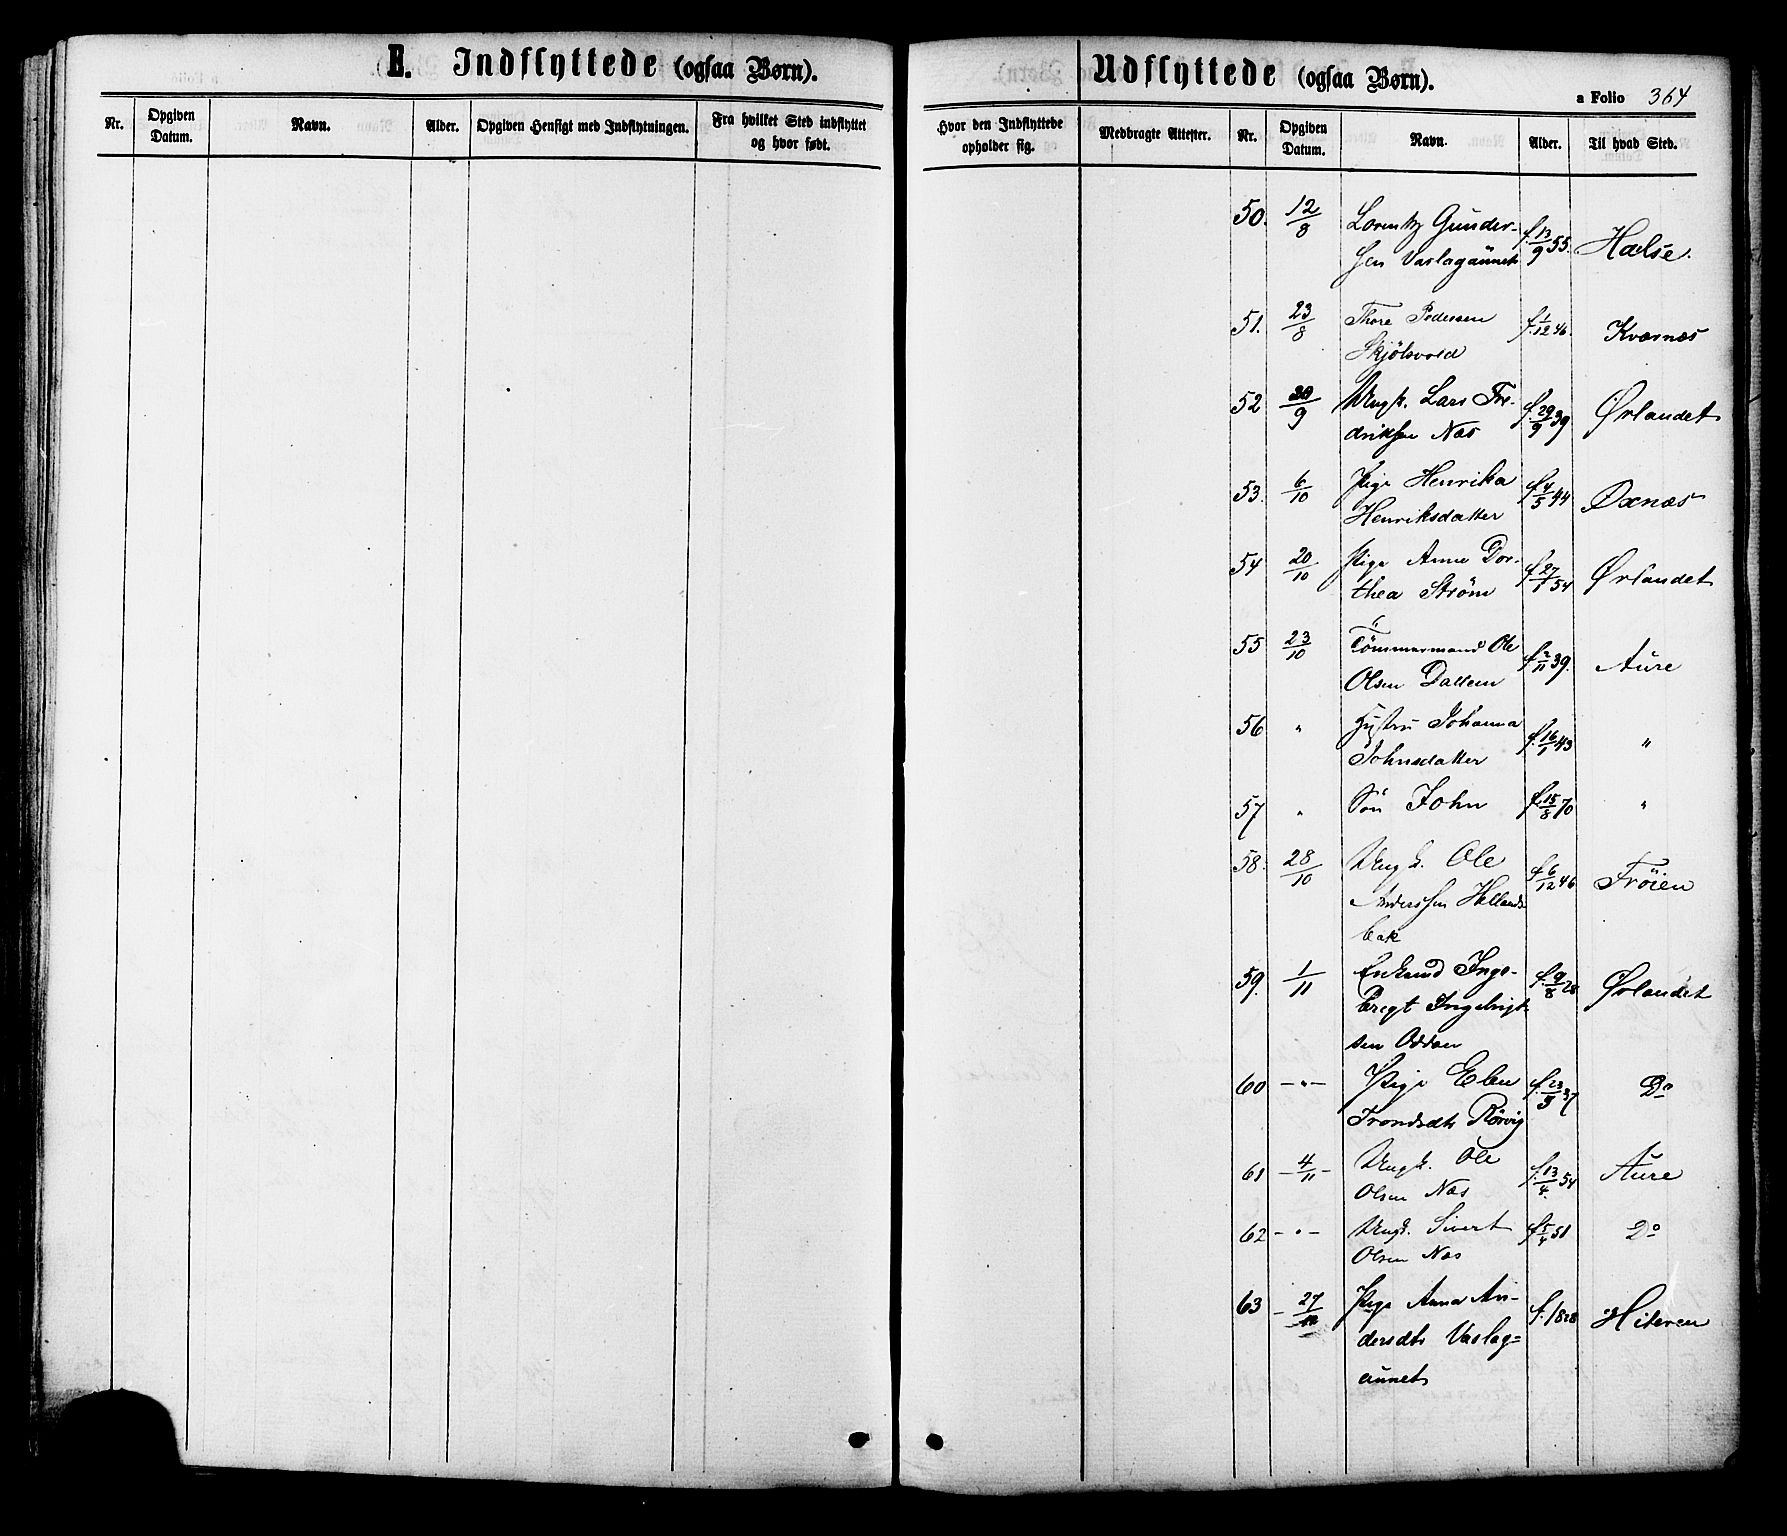 E. Indflyttede (ogsaa Børn).
Nr.
Opgiven Datum.
Navn.
Alder.
Opgiven Hensigt med Indflytningen.
Fra hvilket Sted indflyttet og hvor født.
Udflyttede (ogsaa Børn).
a Folio 364
Hvor den Indflyttede opholder sig.
Medbragte Attester.
Nr.
Opgiven Datum.
Navn.
Alder.
Til hvad Sted.
50. 12/8 Lorentz Gunder-
sen Vaslagaunet f. 13/9 55. Halse.
51. 23/8 Thore Pedersen
Skjölsvold f. 1/12 46. Kværnæs
52 30/9 Ungk. Lars Fre-
driksen Næs f. 29/9 39 Ørlandet
53. 6/10 Pige Henrika
Henriksdatter f. 4/5 44 Øxnæs
54 20/10 Pige Anna Dor-
thea Ström f. 27/1 54 Ørlandet
55 23/10 Tömmermand Ole
Olsen Dallem f. 2/11 39. Aure
56 " Hustru Johanna
Johnsdatter f. 16/1 43 "
57 " Sön John f. 15/8 70 "
58. 28/10 Ungk. Ole
Anderssen Hellands-
bak f. 6/12 46 Fröien
59. 1/11 Enkemd Inge-
bregt Ingebrigt-
sen Oddan f. 9/8 28 Ørlandet
60 —"— Pige Elen
Trondsdtr Rörvig f. 23/5 37 Do
61 4/11 Ungk. Ole
Olsen Næs f. 13/4 54 Aure
62 —"— Ungk. Sivert
Olsen Næs f. 5/4 51 Do
63 27/ Pige Anna An-
dersdtr Vaslag-
aunet f. 1828 Hiteren